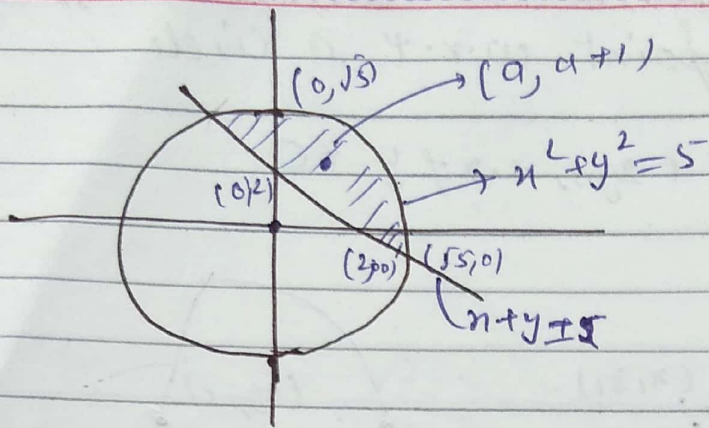 (0,√5)
(a, a+1)
x²+y²=5
(0,2)
(2,0)
(√5,0)